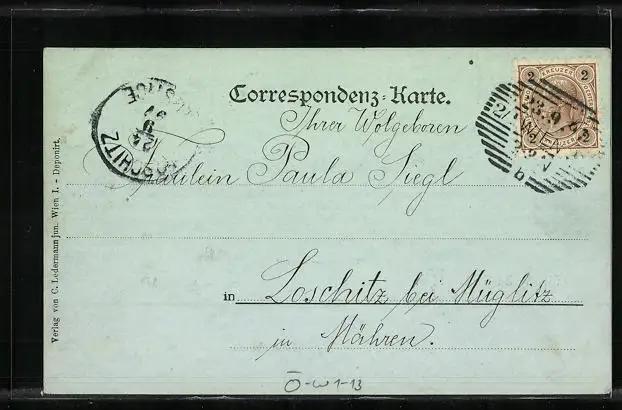 Correspondenz-Karte.
Ihrer Wolgeboren
Fräulein Paula Siegl
in Loschitz bei Müglitz
in Mähren.
Verlag von C. Ledermann jun., Wien I. - Deponirt.
2 KREUZER 2
2
WIEN
23.9.97
b
LOSCHITZ
24
9
97
Ö-W1-13